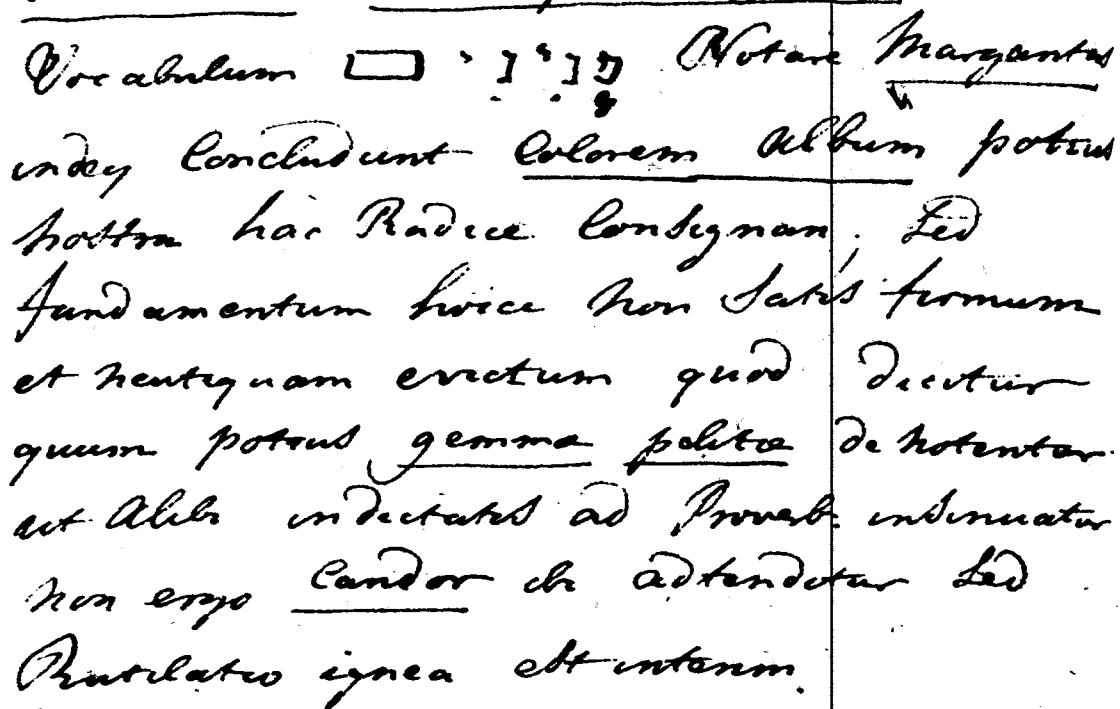 Vocabulum Notare Margaritas
indeq Concludunt Colorem Album potius
nostra hac Radice Consignari, Sed
fundamentum hoice non Satis firmum
et neutiquam evictum quod dicitur
quum potius gemmæ politæ denotentur
ut Alibi indictatis ad Proverb: insinuatur
non ergo Candor ibi adtenditur Sed
Rutilatio ignea est interim.